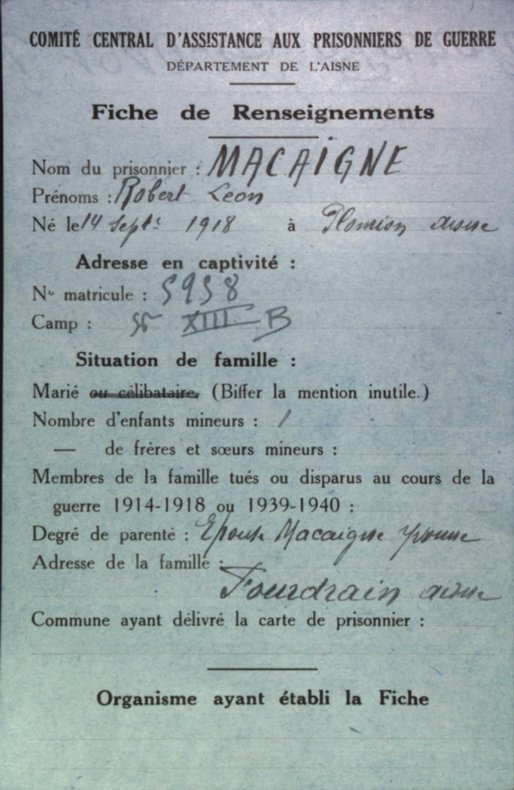 COMITÉ CENTRAL D'ASSISTANCE AUX PRISONNIERS DE GUERRE
DÉPARTEMENT DE L'AISNE
Fiche de Renseignements
Nom du prisonnier : MACAIGNE
Prénoms : Robert Leon
Né le 14 Septs 1918 à Plomion aisne
Adresse en captivité :
No matricule : 5958
Camp : XIII B
Situation de famille :
Marié ou célibataire. (Biffer la mention inutile.)
Nombre d'enfants mineurs : 1
— de frères et sœurs mineurs :
Membres de la famille tués ou disparus au cours de la
guerre 1914-1918 ou 1939-1940 :
Degré de parenté : Epouse Macaigne Yvonne
Adresse de la famille :
Fourdrain aisne
Commune ayant délivré la carte de prisonnier :
Organisme ayant établi la Fiche